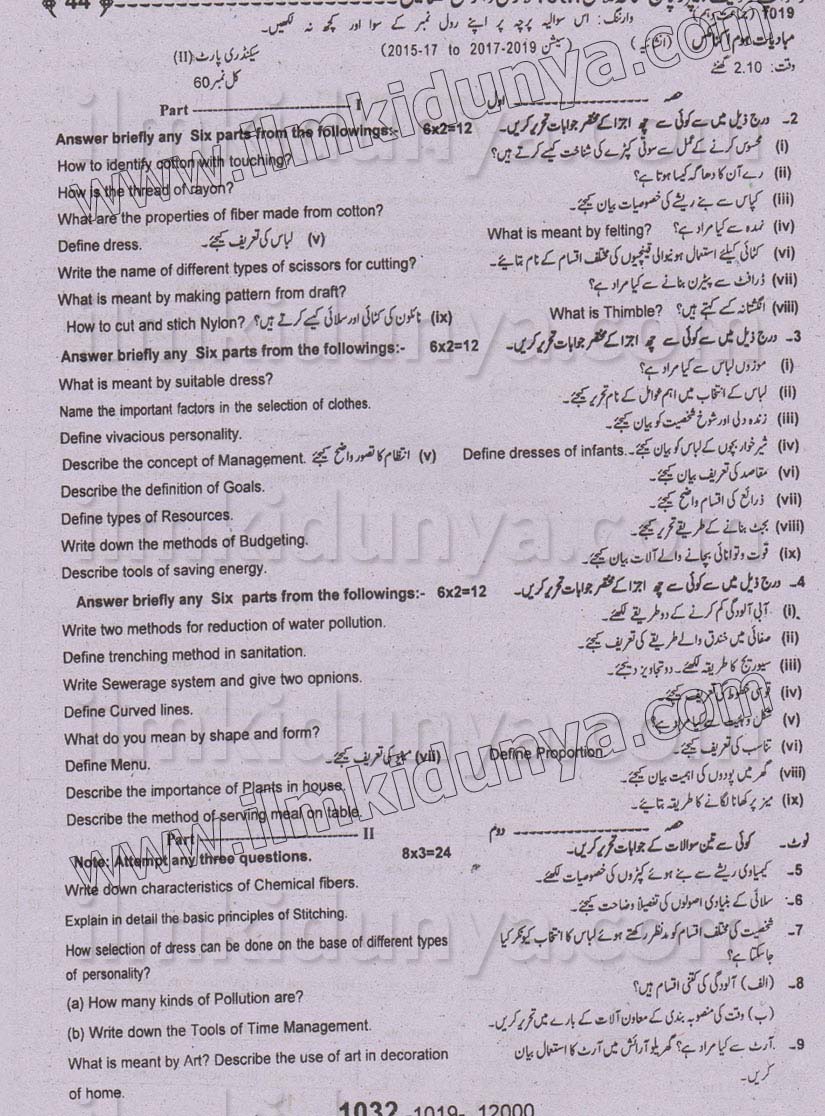 44
1019 وارننگ: اس سوالیہ پرچہ پر اپنے رول نمبر کے سوا اور کچھ نہ لکھیں۔
(انشائیہ) (سیشن 2017-2019 to 2015-17) سیکنڈری پارٹ (II)
وقت: 2.10 گھنٹے کل نمبر 60
حصہ ---------- اول Part ---------- I
Answer briefly any Six parts from the followings:- 6x2=12 2۔ درج ذیل میں سے کوئی سے چھ اجزا کے مختصر جوابات تحریر کریں۔
How to identify cotton with touching? (i) محسوس کرنے کے عمل سے سوتی کپڑے کی شناخت کیسے کرتے ہیں؟
How is the thread of rayon? (ii) رے آن کا دھاگہ کیسا ہوتا ہے؟
What are the properties of fiber made from cotton? (iii) کپاس سے بنے ریشے کی خصوصیات بیان کیجئے۔
Define dress. (v) لباس کی تعریف کیجئے۔ What is meant by felting? (iv) نمدہ سے کیا مراد ہے؟
Write the name of different types of scissors for cutting? (vi) کٹائی کیلئے استعمال ہونیوالی قینچیوں کی مختلف اقسام کے نام بتائیے۔
What is meant by making pattern from draft? (vii) ڈرافٹ سے پیٹرن بنانے سے کیا مراد ہے؟
How to cut and stich Nylon? (ix) نائلون کی کٹائی اور سلائی کیسے کرتے ہیں؟ What is Thimble? (viii) انگشتانہ کسے کہتے ہیں؟
Answer briefly any Six parts from the followings:- 6x2=12 3۔ درج ذیل میں سے کوئی سے چھ اجزا کے مختصر جوابات تحریر کریں۔
What is meant by suitable dress? (i) موزوں لباس سے کیا مراد ہے؟
Name the important factors in the selection of clothes. (ii) لباس کے انتخاب میں اہم عوامل کے نام تحریر کیجئے۔
Define vivacious personality. (iii) زندہ دلی اور شوخ شخصیت کو بیان کیجئے۔
Describe the concept of Management. (v) انتظام کا تصور واضح کیجئے Define dresses of infants. (iv) شیرخوار بچوں کے لباس کو بیان کیجئے۔
Describe the definition of Goals. (vi) مقاصد کی تعریف بیان کیجئے۔
Define types of Resources. (vii) ذرائع کی اقسام واضح کیجئے۔
Write down the methods of Budgeting. (viii) بجٹ بنانے کے طریقے تحریر کیجئے۔
Describe tools of saving energy. (ix) قوت و توانائی بچانے والے آلات بیان کیجئے۔
Answer briefly any Six parts from the followings:- 6x2=12 4۔ درج ذیل میں سے کوئی سے چھ اجزا کے مختصر جوابات تحریر کریں۔
Write two methods for reduction of water pollution. (i) آبی آلودگی کم کرنے کے دو طریقے لکھئے۔
Define trenching method in sanitation. (ii) صفائی میں خندق والے طریقے کی تعریف کیجئے۔
Write Sewerage system and give two opnions. (iii) سیوریج کا طریقہ لکھئے۔ دو تجاویز دیجئے۔
Define Curved lines. (iv) قوسی خطوط کی تعریف کیجئے۔
What do you mean by shape and form? (v) شکل و ہیئت سے کیا مراد ہے؟
Define Menu. (vii) مینیو کی تعریف کیجئے۔ Define Proportion (vi) تناسب کی تعریف کیجئے۔
Describe the importance of Plants in house. (viii) گھر میں پودوں کی اہمیت بیان کیجئے۔
Describe the method of serving meal on table. (ix) میز پر کھانا لگانے کا طریقہ بتائیے۔
حصہ ---------- دوم Part ---------- II
Note: Attempt any three questions. 8x3=24 نوٹ۔ کوئی سے تین سوالات کے جوابات تحریر کریں۔
Write down characteristics of Chemical fibers. 5۔ کیمیاوی ریشے سے بنے ہوئے کپڑوں کی خصوصیات لکھئے۔
Explain in detail the basic principles of Stitching. 6۔ سلائی کے بنیادی اصولوں کی تفصیلاً وضاحت کیجئے۔
How selection of dress can be done on the base of different types 7۔ شخصیت کی مختلف اقسام کو مدنظر رکھتے ہوئے لباس کا انتخاب کیونکر کیا
of personality? جاسکتا ہے؟
(a) How many kinds of Pollution are? 8۔ (الف) آلودگی کی کتنی اقسام ہیں؟
(b) Write down the Tools of Time Management. (ب) وقت کی منصوبہ بندی کے معاون آلات کے بارے میں تحریر کریں۔
What is meant by Art? Describe the use of art in decoration 9۔ آرٹ سے کیا مراد ہے؟ گھریلو آرائش میں آرٹ کا استعمال بیان
of home. کریں۔
1032 -1019- 12000
www.ilmkidunya.com
www.ilmkidunya.com
ilmkidunya.com
ilmkidunya.com
ilmkidunya.com
ilmkidunya.com
ilmkidunya.com